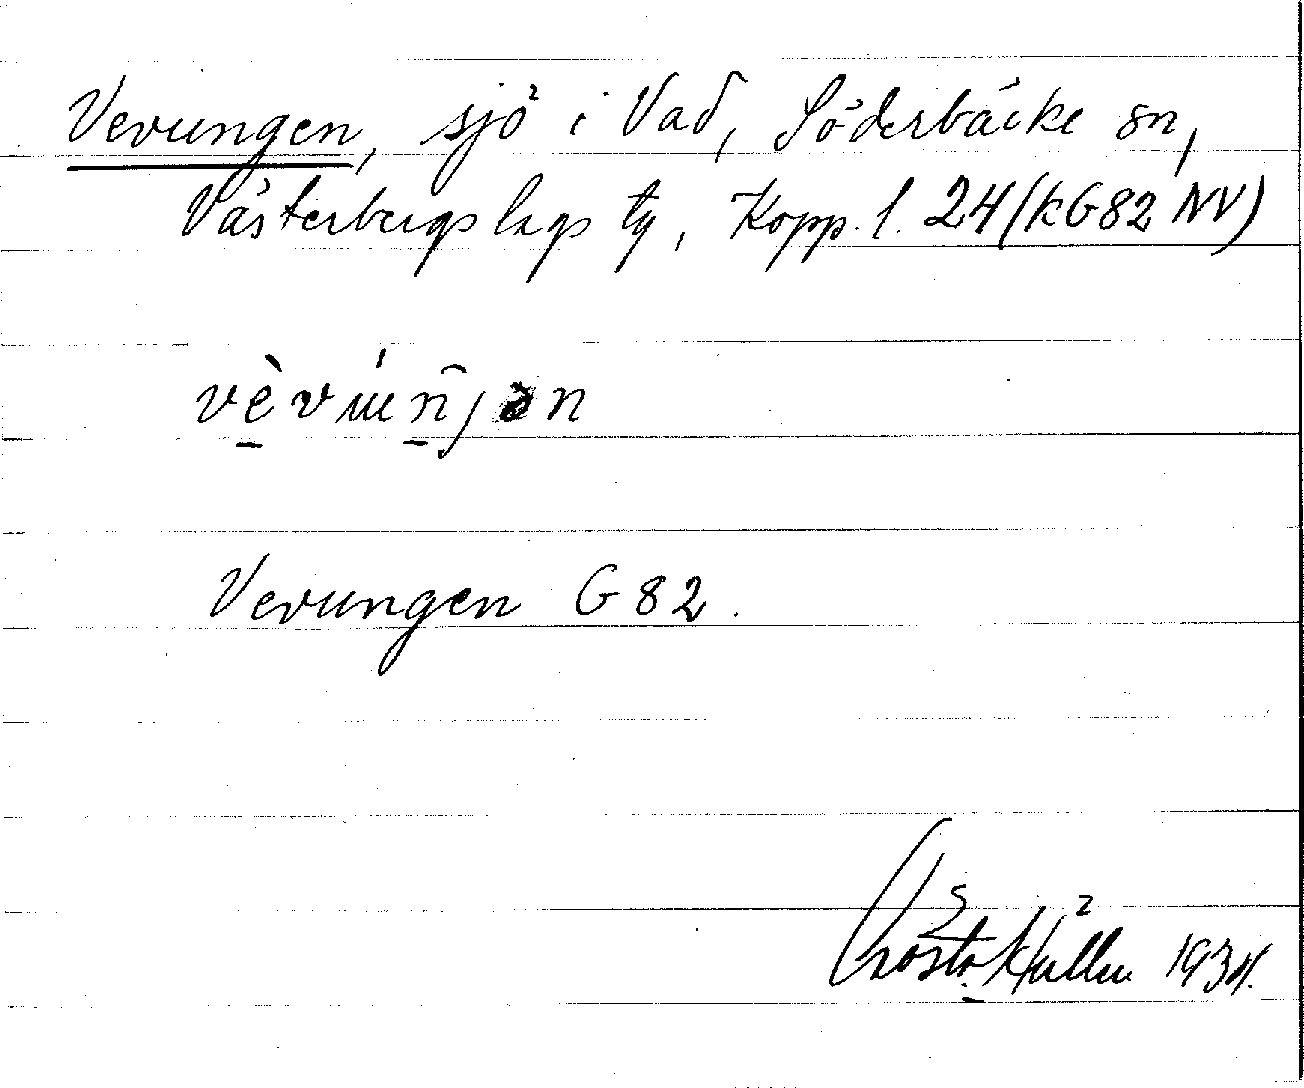 Vevungen, sjö i Vad, Söderbärke sn,
Västerbergslags tg, Kopp. l. 24 (kG82 NV)
vèvuŋ̃jən
Vevungen G82.
Gösta 1934.